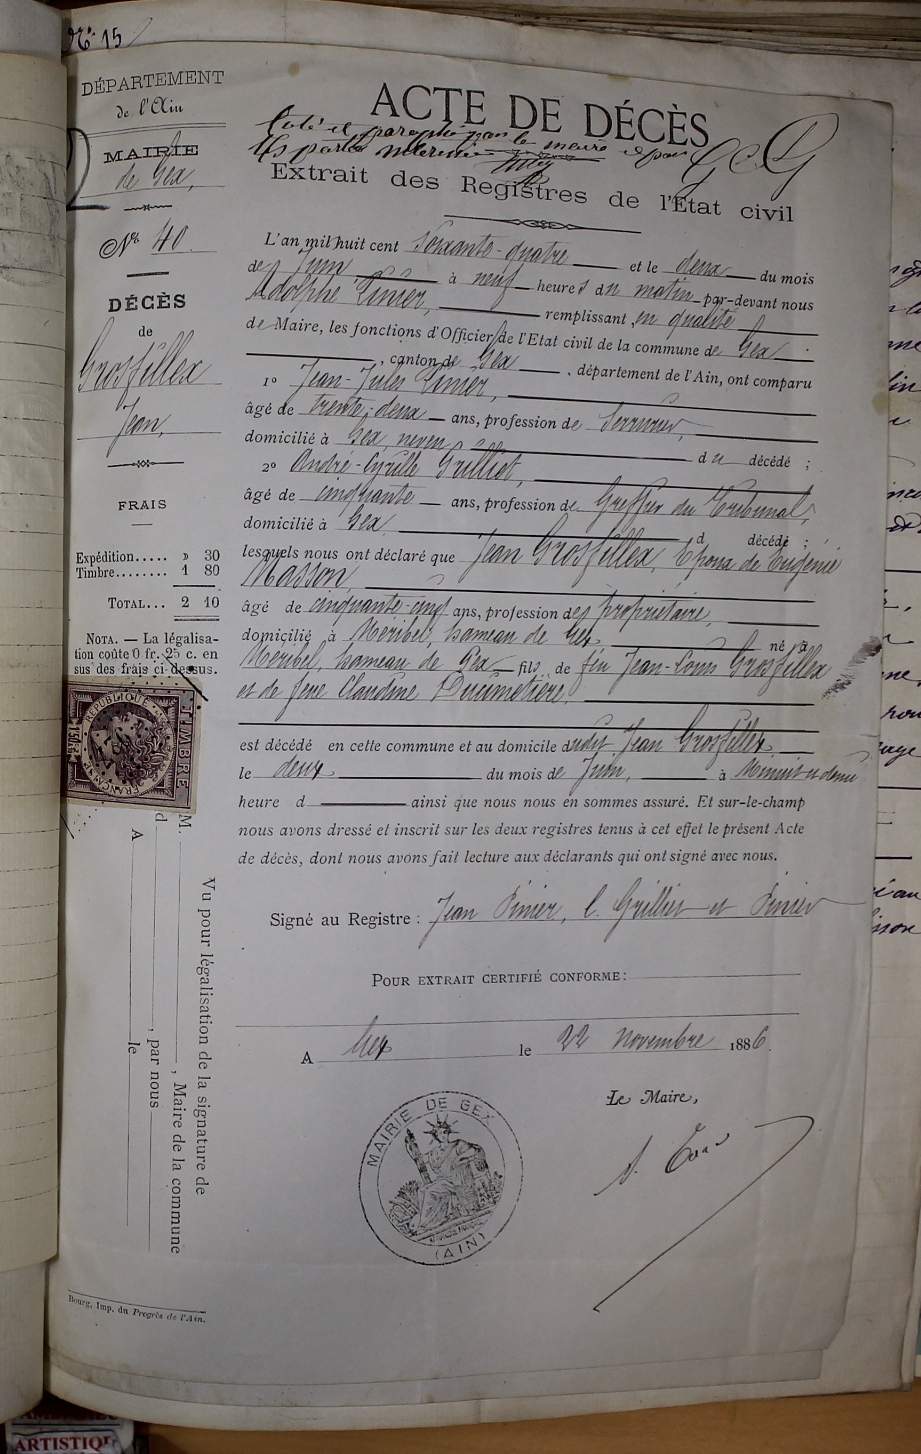 N° 15
DÉPARTEMENT
de l'Ain
MAIRIE
de Gex,
N° 40
DÉCÈS
de
Grosfillex
Jean,
FRAIS
Expédition..... » 30
Timbre........ 1 80
TOTAL... 2 10
NOTA. — La légalisa-
tion coûte 0 fr. 25 c. en
sus des frais ci-dessus.
RÉPUBLIQUE
FRANÇAISE
TIMBRE
M.
d
A
Vu pour légalisation de la signature de
, Maire de la commune
, par nous
le
Bourg, Imp. du Progrès de l'Ain.
ACTE DE DÉCÈS
Coté et paraphé par le maire et par
les parties
Extrait des Registres de l'État civil
L'an mil huit cent soixante-quatre et le deux du mois
de Juin à neuf heures du matin par-devant nous
Adolphe Pinier, remplissant en qualité
de Maire, les fonctions d'Officier de l'Etat civil de la commune de Gex
, canton de Gex , département de l'Ain, ont comparu
1° Jean-Jules Pinier,
âgé de trente-deux ans, profession de Serrurier,
domicilié à Gex, neveu du décédé ;
2° André-Cyrille Grilliet,
âgé de cinquante ans, profession de Greffier du Tribunal,
domicilié à Gex d décédé ;
lesquels nous ont déclaré que Jean Grosfillex, Epoux de Eugénie
Masson,
âgé de cinquante-cinq ans, profession de propriétaire,
domicilié à Méribel, hameau de Gex, né à
Méribel, hameau de Gex fils de feu Jean-Louis Grosfillex
et de feue Claudine Ducimetière,
est décédé en cette commune et au domicile dudit Jean Grosfillex
le deux du mois de Juin, à Minuit et demi
heure d ainsi que nous nous en sommes assuré. Et sur-le-champ
nous avons dressé et inscrit sur les deux registres tenus à cet effet le présent Acte
de décès, dont nous avons fait lecture aux déclarants qui ont signé avec nous.
Signé au Registre : Jean Pinier, C. Grilliet et Pinier
POUR EXTRAIT CERTIFIÉ CONFORME :
A Gex le 22 novembre 1886
Le Maire,
MAIRIE DE GEX
(AIN)
ARTISTIQ